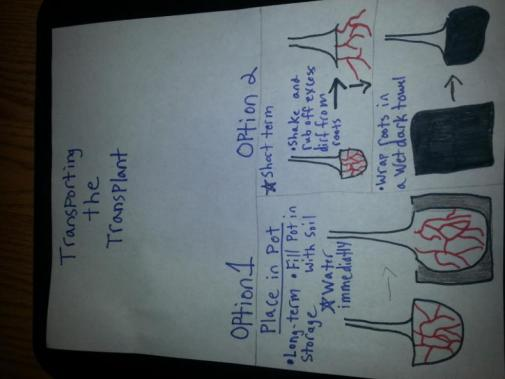 Transporting
the
Transplant
Option 1
Place in Pot
• Long-term
Storage
• Fill Pot in
with soil
☆ Water
immediatly
Option 2
☆ Short term
• Shake and
rub off excess
dirt from
roots
• Wrap roots in
a wet dark towel